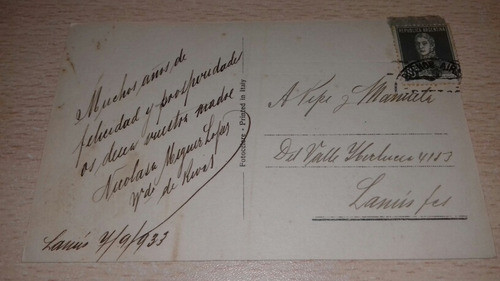 Muchos años de
felicidad y prosperidades
os desea vuestra madre
Nicolasa Miguel Lopez
Vda de
Lanús 4/9/933
Fotocelere - Printed in Italy
REPUBLICA ARGENTINA
BUENOS AIRES
A Pepe y Manuela
Del Valle Yberlucea 4153
Lanús fcs